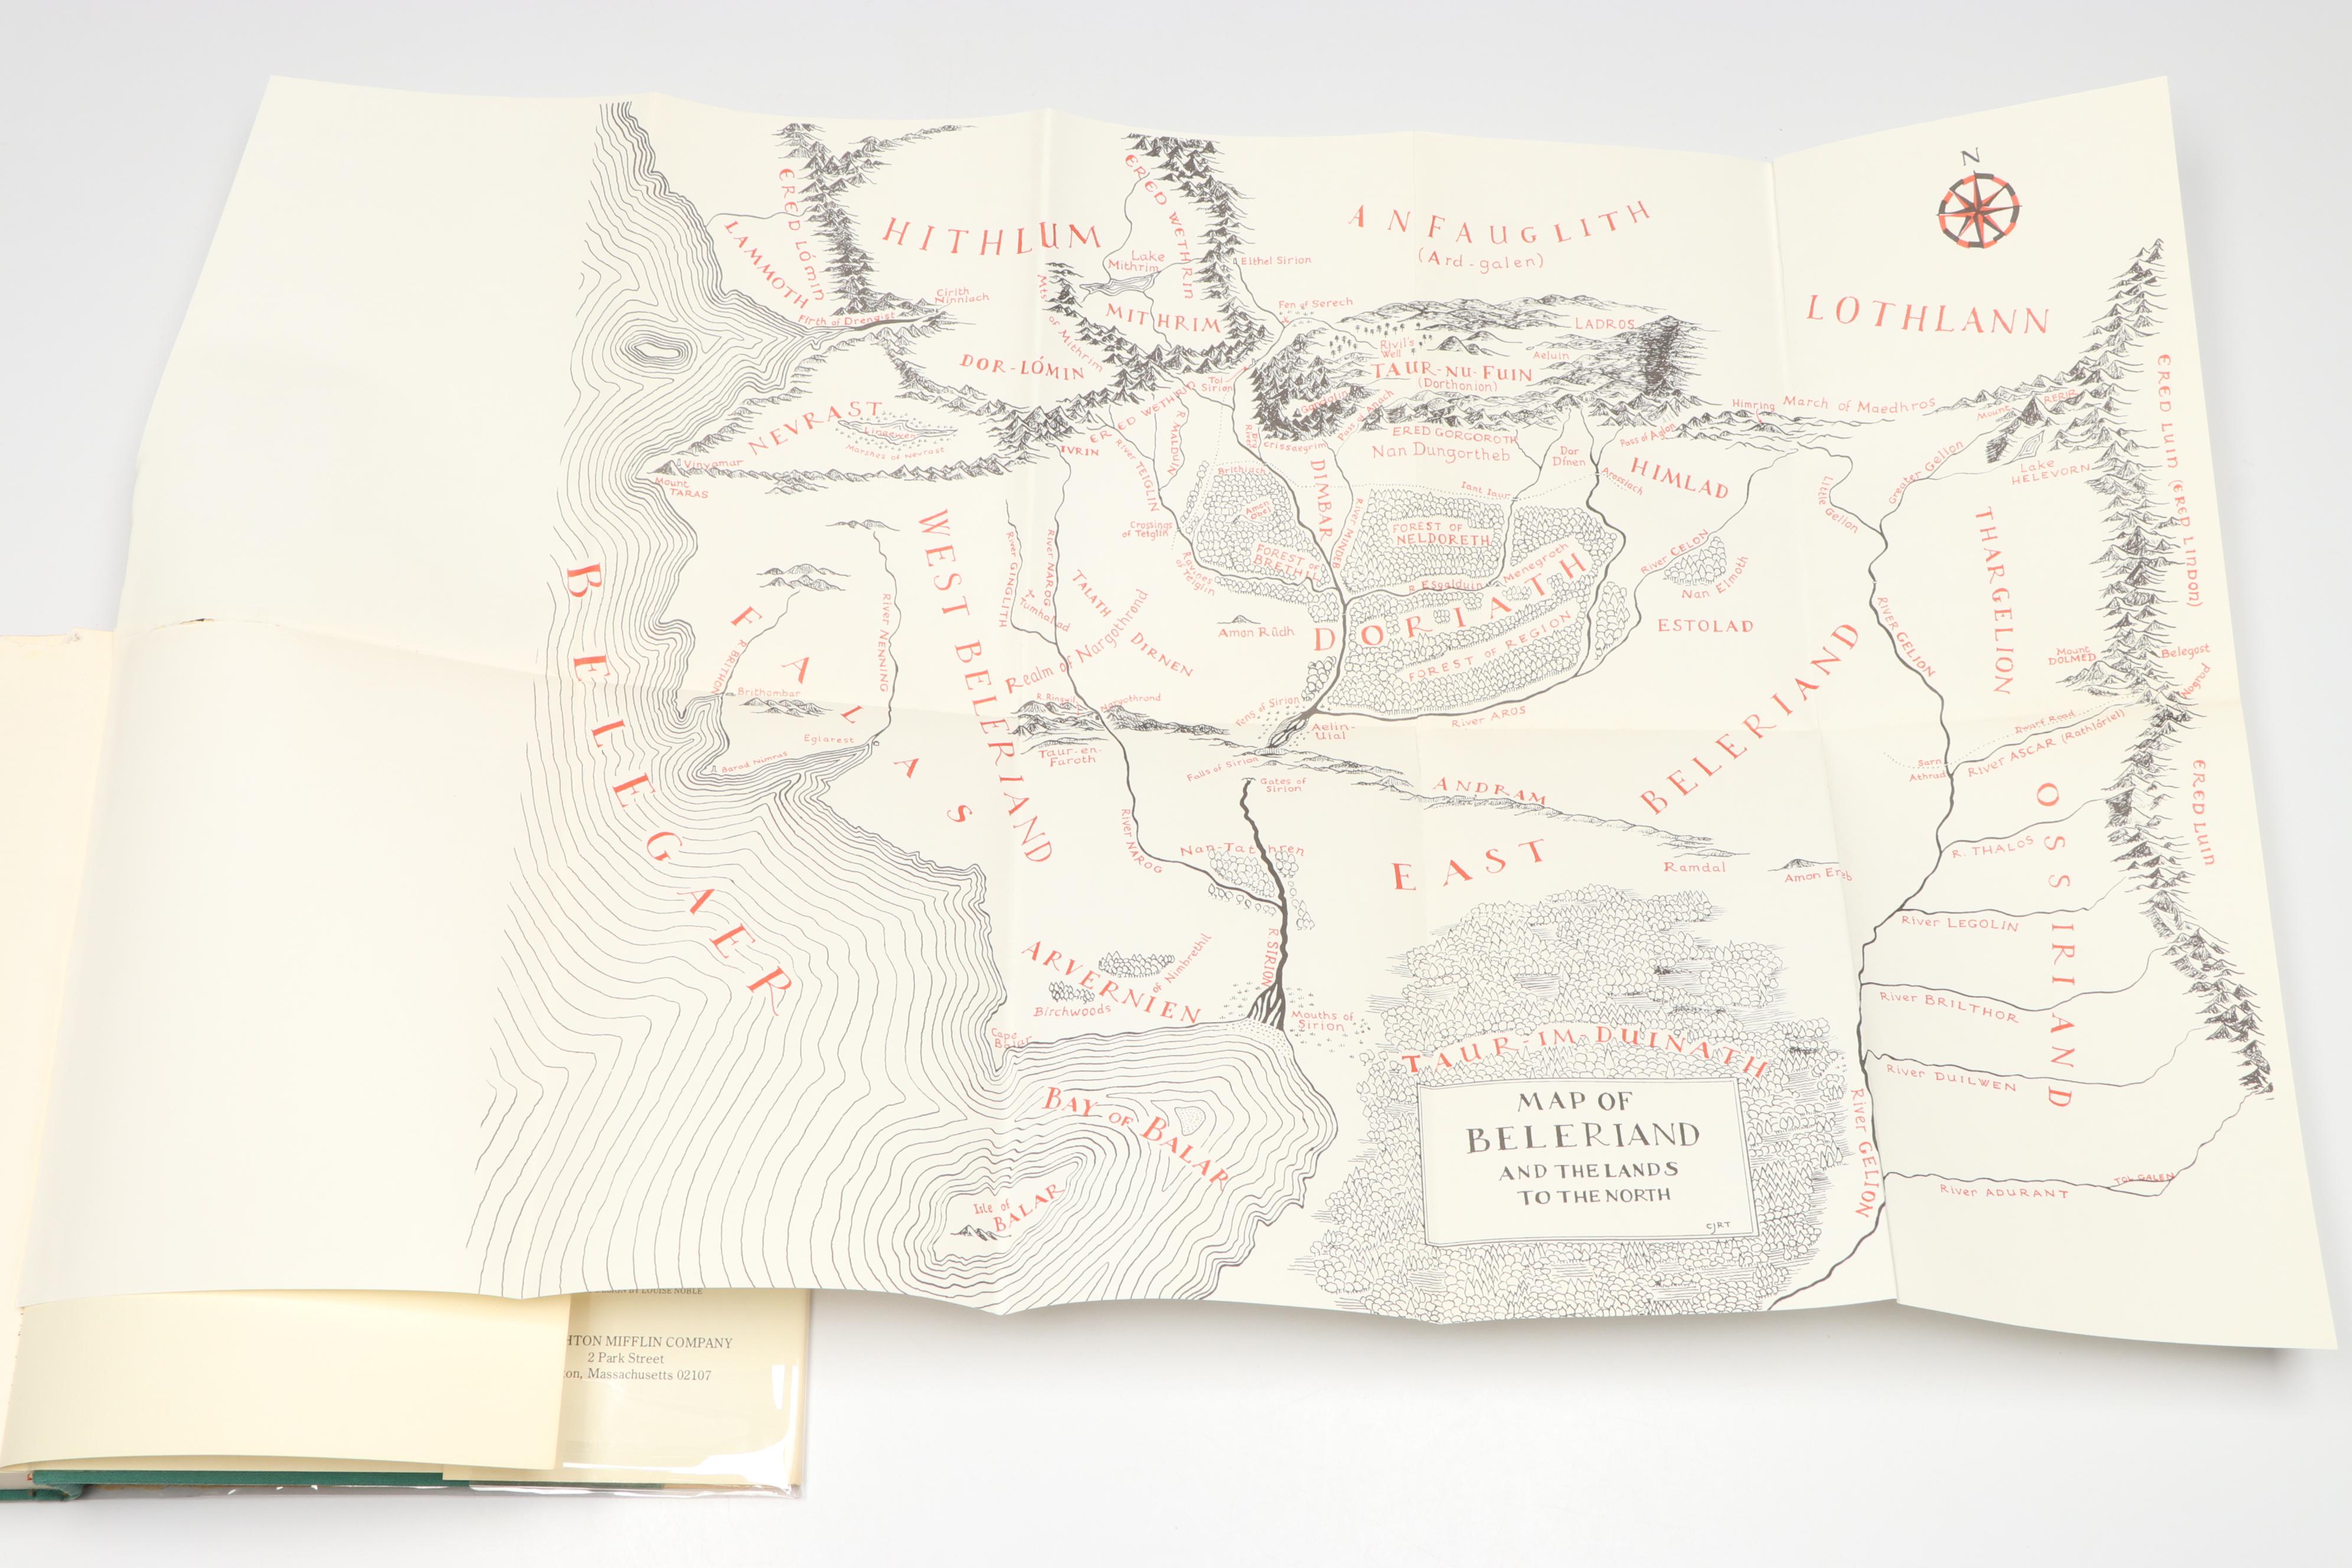 N
HITHLUM
ERED LÓMIN
LAMMOTH
Firth of Drengist
Cirith
Ninniach
ERED WETHRIN
Lake
Mithrim
MITHRIM
Mts. of Mithrim
DOR-LÓMIN
Eithel Sirion
ANFAUGLITH
(Ard-galen)
Fen of Serech
LADROS
Rivil's
Well
Aeluin
TAUR-NU-FUIN
(Dorthonion)
LOTHLANN
Himring
March of Maedhros
Mount RERIR
ERED LUIN (ERED LINDON)
NEVRAST
Linaewen
Marshes of Nevrast
Vinyamar
Mount
TARAS
ERED WETHRIN
IVRIN
Tol
Sirion
River TEIGLIN
R. MALDUIN
Crissaegrim
Pass of Anach
ERED GORGOROTH
Nan Dungortheb
Dor
Dínen
Pass of Aglon
HIMLAD
Arossiach
Brithiach
DIMBAR
River MINDEB
Iant Iaur
Greater Gelion
Little
Gelion
Lake
HELEVORN
Amon
Obel
Crossings
of Teiglin
FOREST OF
BRETHIL
Ravines
of Teiglin
FOREST OF
NELDORETH
R. Esgalduin
Menegroth
DORIATH
FOREST OF REGION
River CELON
Nan Elmoth
ESTOLAD
THARGELION
RIVER GELION
Mount
DOLMED
Belegost
Nogrod
BELEGAER
FALAS
R. BRITHON
Brithombar
River NENNING
Eglarest
Barad Nimras
WEST BELERIAND
River GINGLITH
River NAROG
Tumhalad
TALATH DIRNEN
Realm of Nargothrond
R. Ringwil
Nargothrond
Taur-en-
Faroth
Amon Rûdh
Fens of Sirion
Aelin-
Uial
River AROS
Falls of Sirion
Gates of
Sirion
ANDRAM
EAST BELERIAND
Ramdal
Amon Ereb
Dwarf Road
Sarn
Athrad
River ASCAR (Rathlóriel)
OSSIRIAND
ERED LUIN
R. THALOS
River LEGOLIN
River BRILTHOR
River DUILWEN
River ADURANT
TOL GALEN
River GELION
River NAROG
Nan-Tathren
R. SIRION
ARVERNIEN
Birchwoods
of Nimbrethil
Cape
Balar
Mouths of
Sirion
BAY OF BALAR
Isle of
BALAR
TAUR-IM-DUINATH
MAP OF
BELERIAND
AND THE LANDS
TO THE NORTH
CJRT
BY LOUISE NOBLE
HTON MIFFLIN COMPANY
2 Park Street
on, Massachusetts 02107